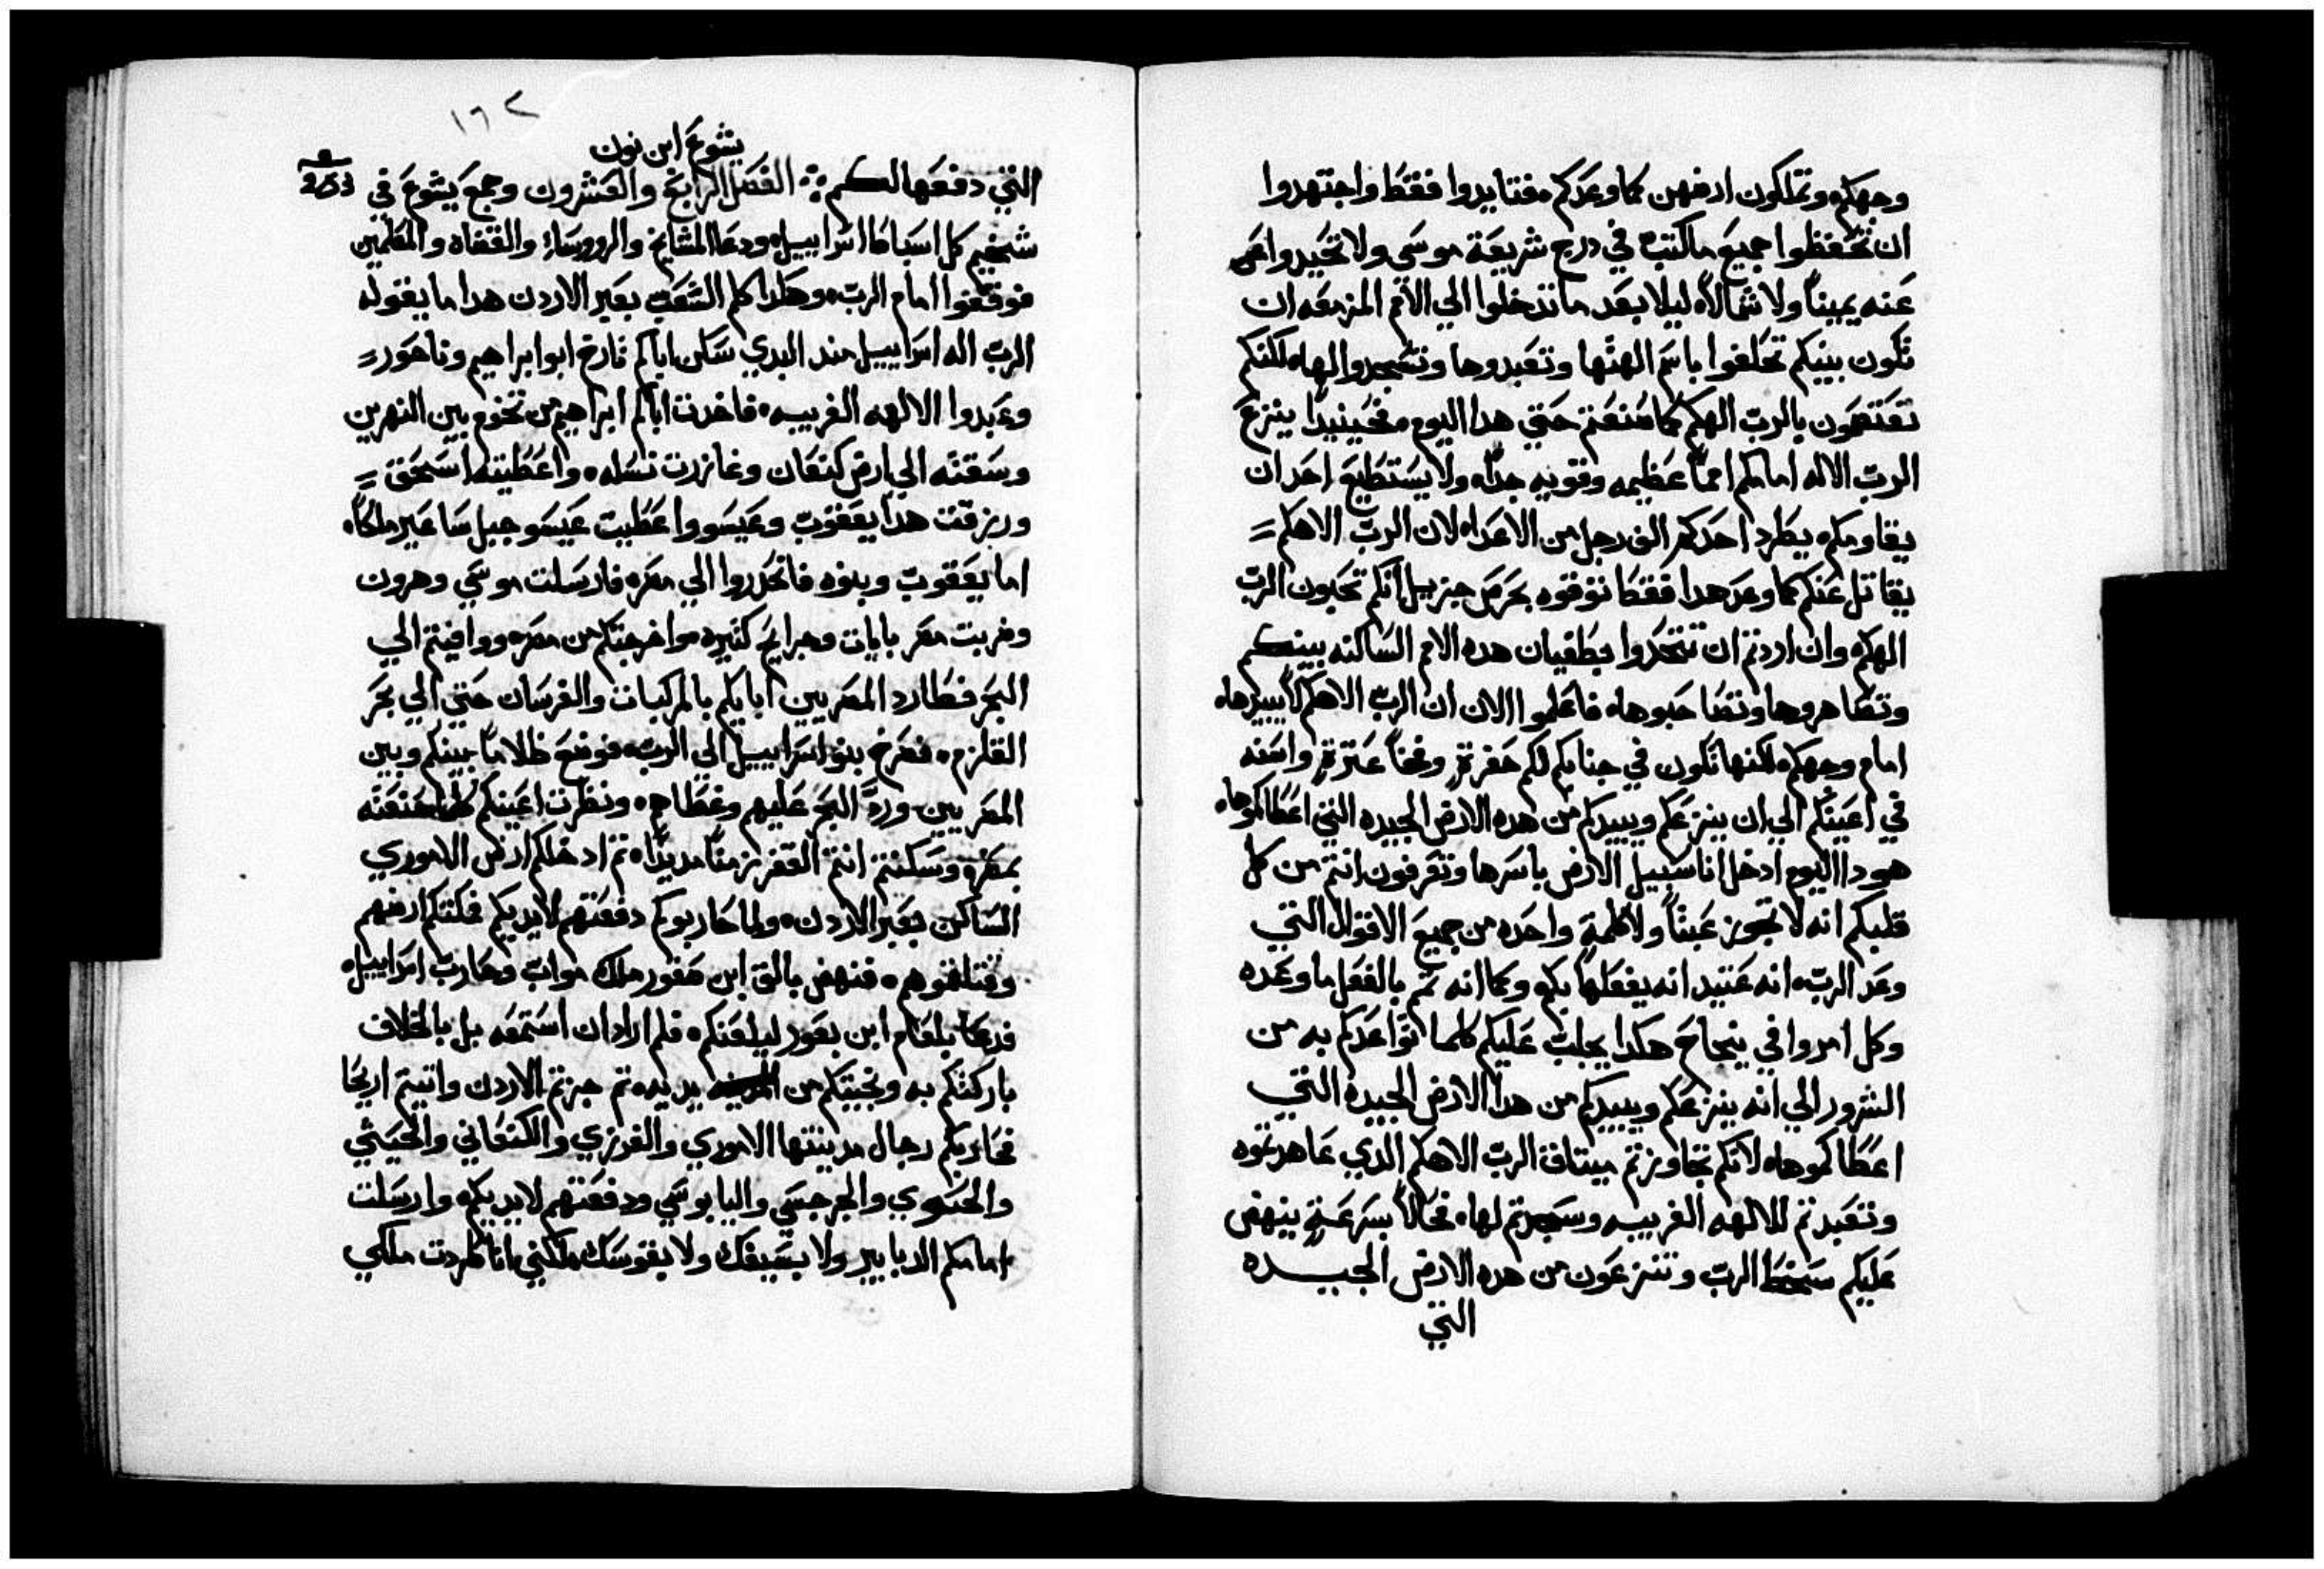 وجهكم، وتملكون ارضهن كما وعدكم، فتايدوا فقط واجتهدوا
ان تحفظوا جميع ماكتب في درج شريعة موسى ولا تحيدوا
عنه يميناً ولا شمالاً، ليلا بعد ما تدخلوا الي الأمم المزمعه ان
تكون بينكم تحلفوا باسم الهتها وتعبدوها وتسجدوا لها، لكنكم
تعتصمون بالرب الهكم كما صنعتم حتي هدا اليوم، فحينيدٍ ينزع
الرب الاله امامكم امماً عظيمه وقويه جداً، ولا يستطيع احد ان
يقاومكم، يطرد احدكم الف رجل من الاعدا، لان الرب الاهكم
يقاتل عنكم كما وعد هدا فقط توقوه بحرص جزيل انكم تحبون الرب
الهكم، وان اردتم ان تتحدوا بطغيان هده الامم الساكنه بينكم
وتصاهروها وتصاحبوها، فاعلموا الان ان الرب الاهكم لا يبيدها،
امام وجهكم، لكنها تكون في جنابكم لكم حفرةٍ، وفخاً عثرةٍ، واسنه
في اعينكم الي ان ينزعكم ويبيدكم من هده الارض الجيده التي اعطاكموها،
هودا اليوم ادخل انا سبيل الارض باسرها وتعرفون انتم من كل
قلبكم انه لا تجوز عبثاً ولا كلمةٍ واحده من جميع الاقوال التي
وعد الرب، انه عتيد انه يفعلها بكم، وكما انه تم بالفعل ما وعده
وكل امروا في ينجاح هكدا يجلب عليكم كلما تواعدكم به من
الشرور الي انه ينزعكم ويبيدكم من هدا الارض الجيده التي
اعطاكموها، لانكم تجاوزتم ميتاق الرب الاهكم الدي عاهدتموه
وتعبدتم للالهه الغريبه وسجدتم لها، فحالاً بسرعةٍ ينهض
عليكم سخط الرب وتنزعون من هده الارض الجيده
التي
١٦٢
يشوع ابن نون
253
التي دفعها لكم ؞ الفصل الرابع والعشرون وجمع يشوع في
شخيم كل اسباط اسراييل، ودعا المشايخ والرووساء والقضاه والمعلمين
فوقفوا امام الرب، وهكدا كلم الشعب بعبر الاردن هدا ما يقوله
الرب اله اسراييل مند البدي سكن اباكم تارخ ابو ابراهيم وناحور
وعبدوا الالهه الغريبه، فاخدت اباكم ابراهيم من تخوم بين النهرين
وسقته الي ارض كنعان وغازرت نسله، واعطيته اسحق
ورزقت هدا يعقوب وعيسو واعطيت عيسو جبل ساعير ملكاً،
اما يعقوب وبنوه فانحدروا الي مصر، فارسلت موسي وهرون
وضربت مصر بايات وجرايح كثيره، واخرجتكم من مصر، ووافيتم الي
البحر فطارد المصريين ابايكم بالمركبات والفرسان حتي الي بحر
القلزم، فصرخ بنو اسراييل الي الرب، فوضع ظلاماً بينكم وبين
المصريين ورد البحر عليهم وغطاهم، ونظرت اعينكم كلما صنعته
بمصر، وسكنتم انتم القفر زمناً مديداً، تم ادخلكم ارض الاموري
الساكن بعبر الاردن، ولما حاربوكم دفعتهم لايديكم فملكتم ارضهم
وقتلتموهم، فنهض بالق ابن صفور ملك مواب وحارب اسراييل،
فدعا بلعام ابن بعور ليلعنكم، فلم اراد ان استمعه بل بالخلاف
باركتكم به ونجيتكم من يديه، تم جزتم الاردن واتيتم اريحا
فحاربكم رجال مدينتها الاموري والفرزي والكنعاني والحيثي
والحوي والجرجسي واليابوسي ودفعتهم لايديكم، وارسلت
امامكم الدبابير ولا بسيفك ولا بقوسك، لكني انا طردت ملكي